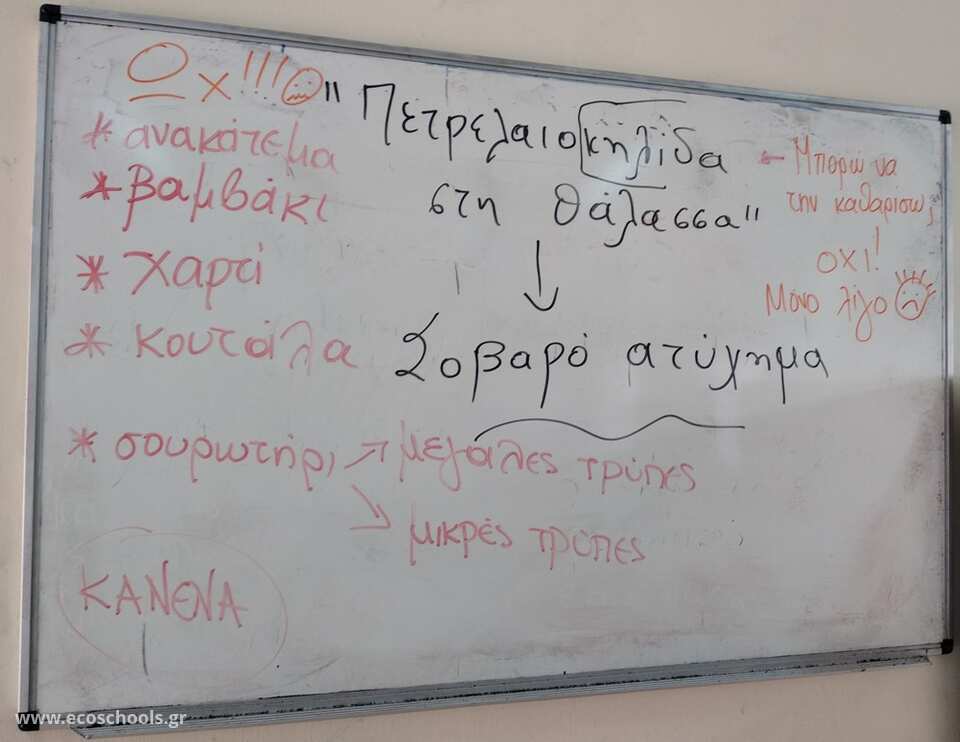 Οχ!!!
"Πετρελαιοκηλίδα
στη θάλασσα"
Σοβαρό ατύχημα
* ανακάτεμα
* βαμβάκι
* χαρτί
* κουτάλα
* σουρωτήρι → μεγάλες τρύπες
→ μικρές τρύπες
ΚΑΝΕΝΑ
← Μπορώ να
την καθαρίσω;
ΟΧΙ!
Μόνο λίγο
www.ecoschools.gr